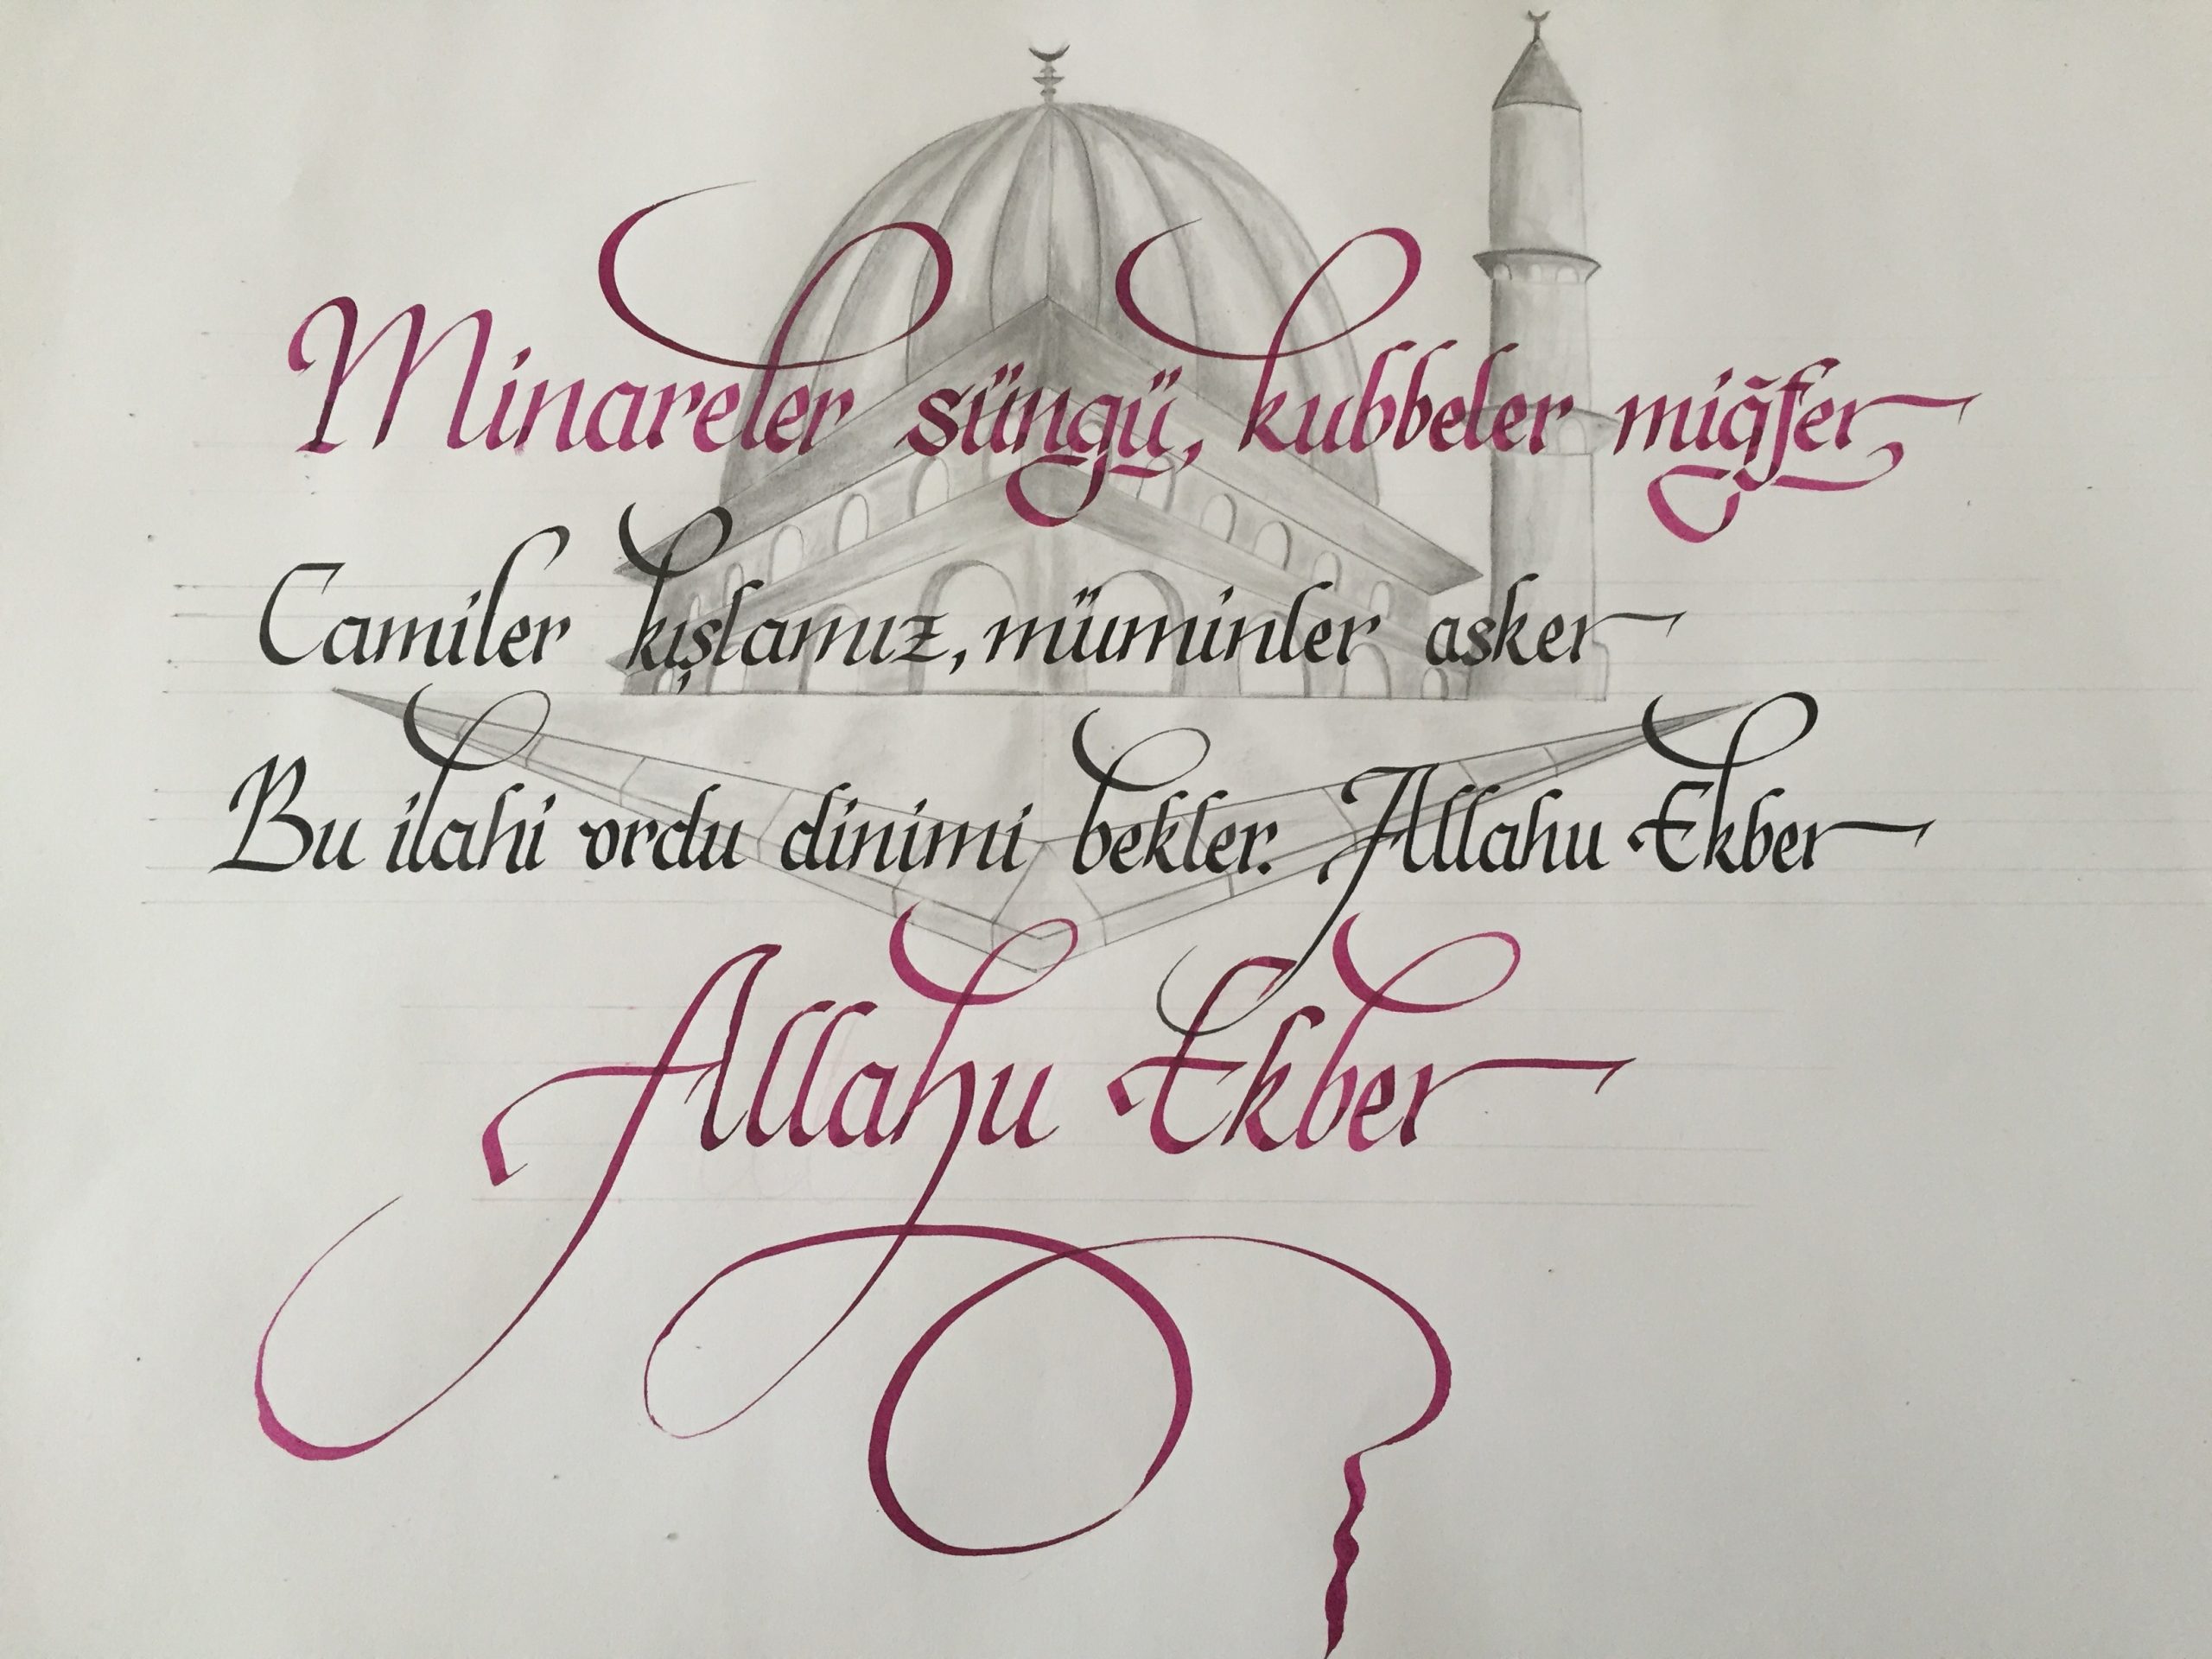 Minareler süngü, kubbeler miğfer
Camiler kışlamız, müminler asker
Bu ilahi ordu dinimi bekler. Allahu Ekber
Allahu Ekber